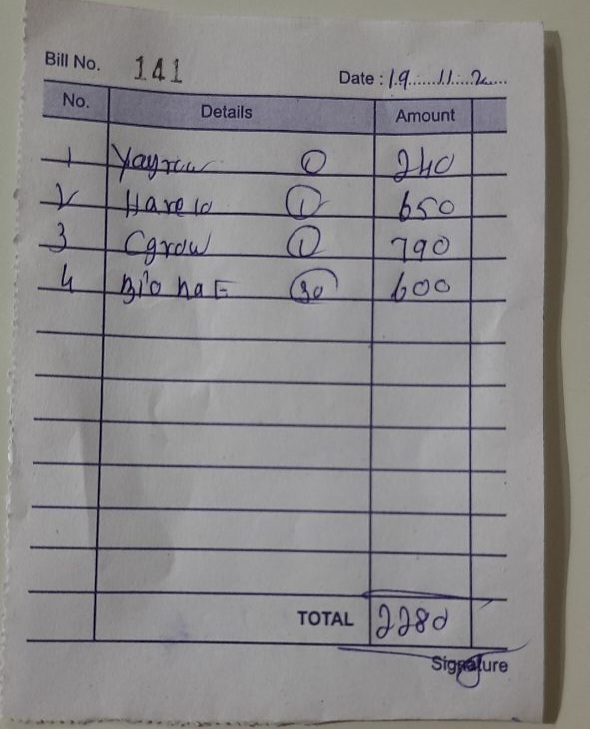 Bill No. 141 Date : 19.11.2
No. Details Amount
1 Yagrow 1 240
2 Hare 10 1 650
3 Cgrow 1 790
4 Bio na E 30 600
TOTAL 2280
Signature